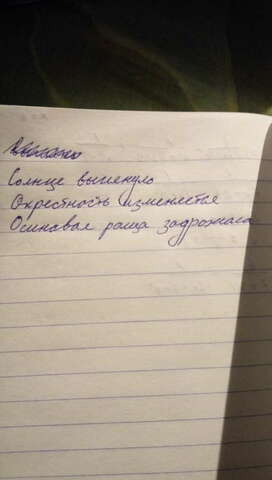 Солнце выгленуло
Окрестность изменястье
Осиновая роща задрожала